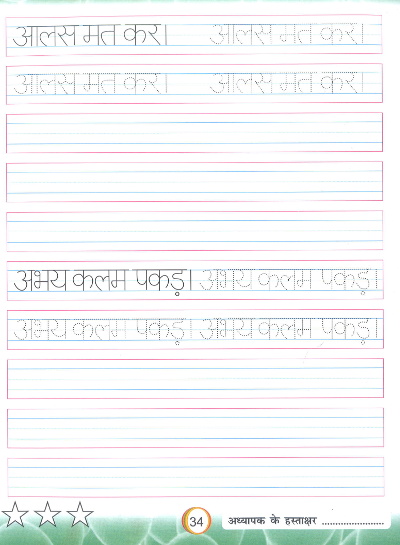 आलस मत कर। आलस मत कर।
आलस मत कर। आलस मत कर।
अभय कलम पकड़। अभय कलम पकड़।
अभय कलम पकड़। अभय कलम पकड़।
34 अध्यापक के हस्ताक्षर ........................